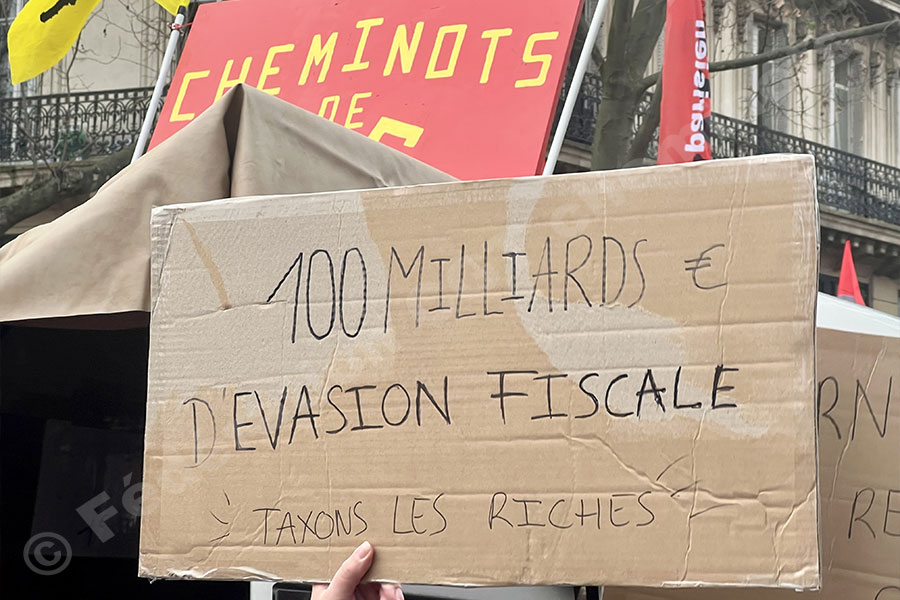 CHEMINOTS
DE
parisien
100 MILLIARDS €
D'EVASION FISCALE
TAXONS LES RICHES